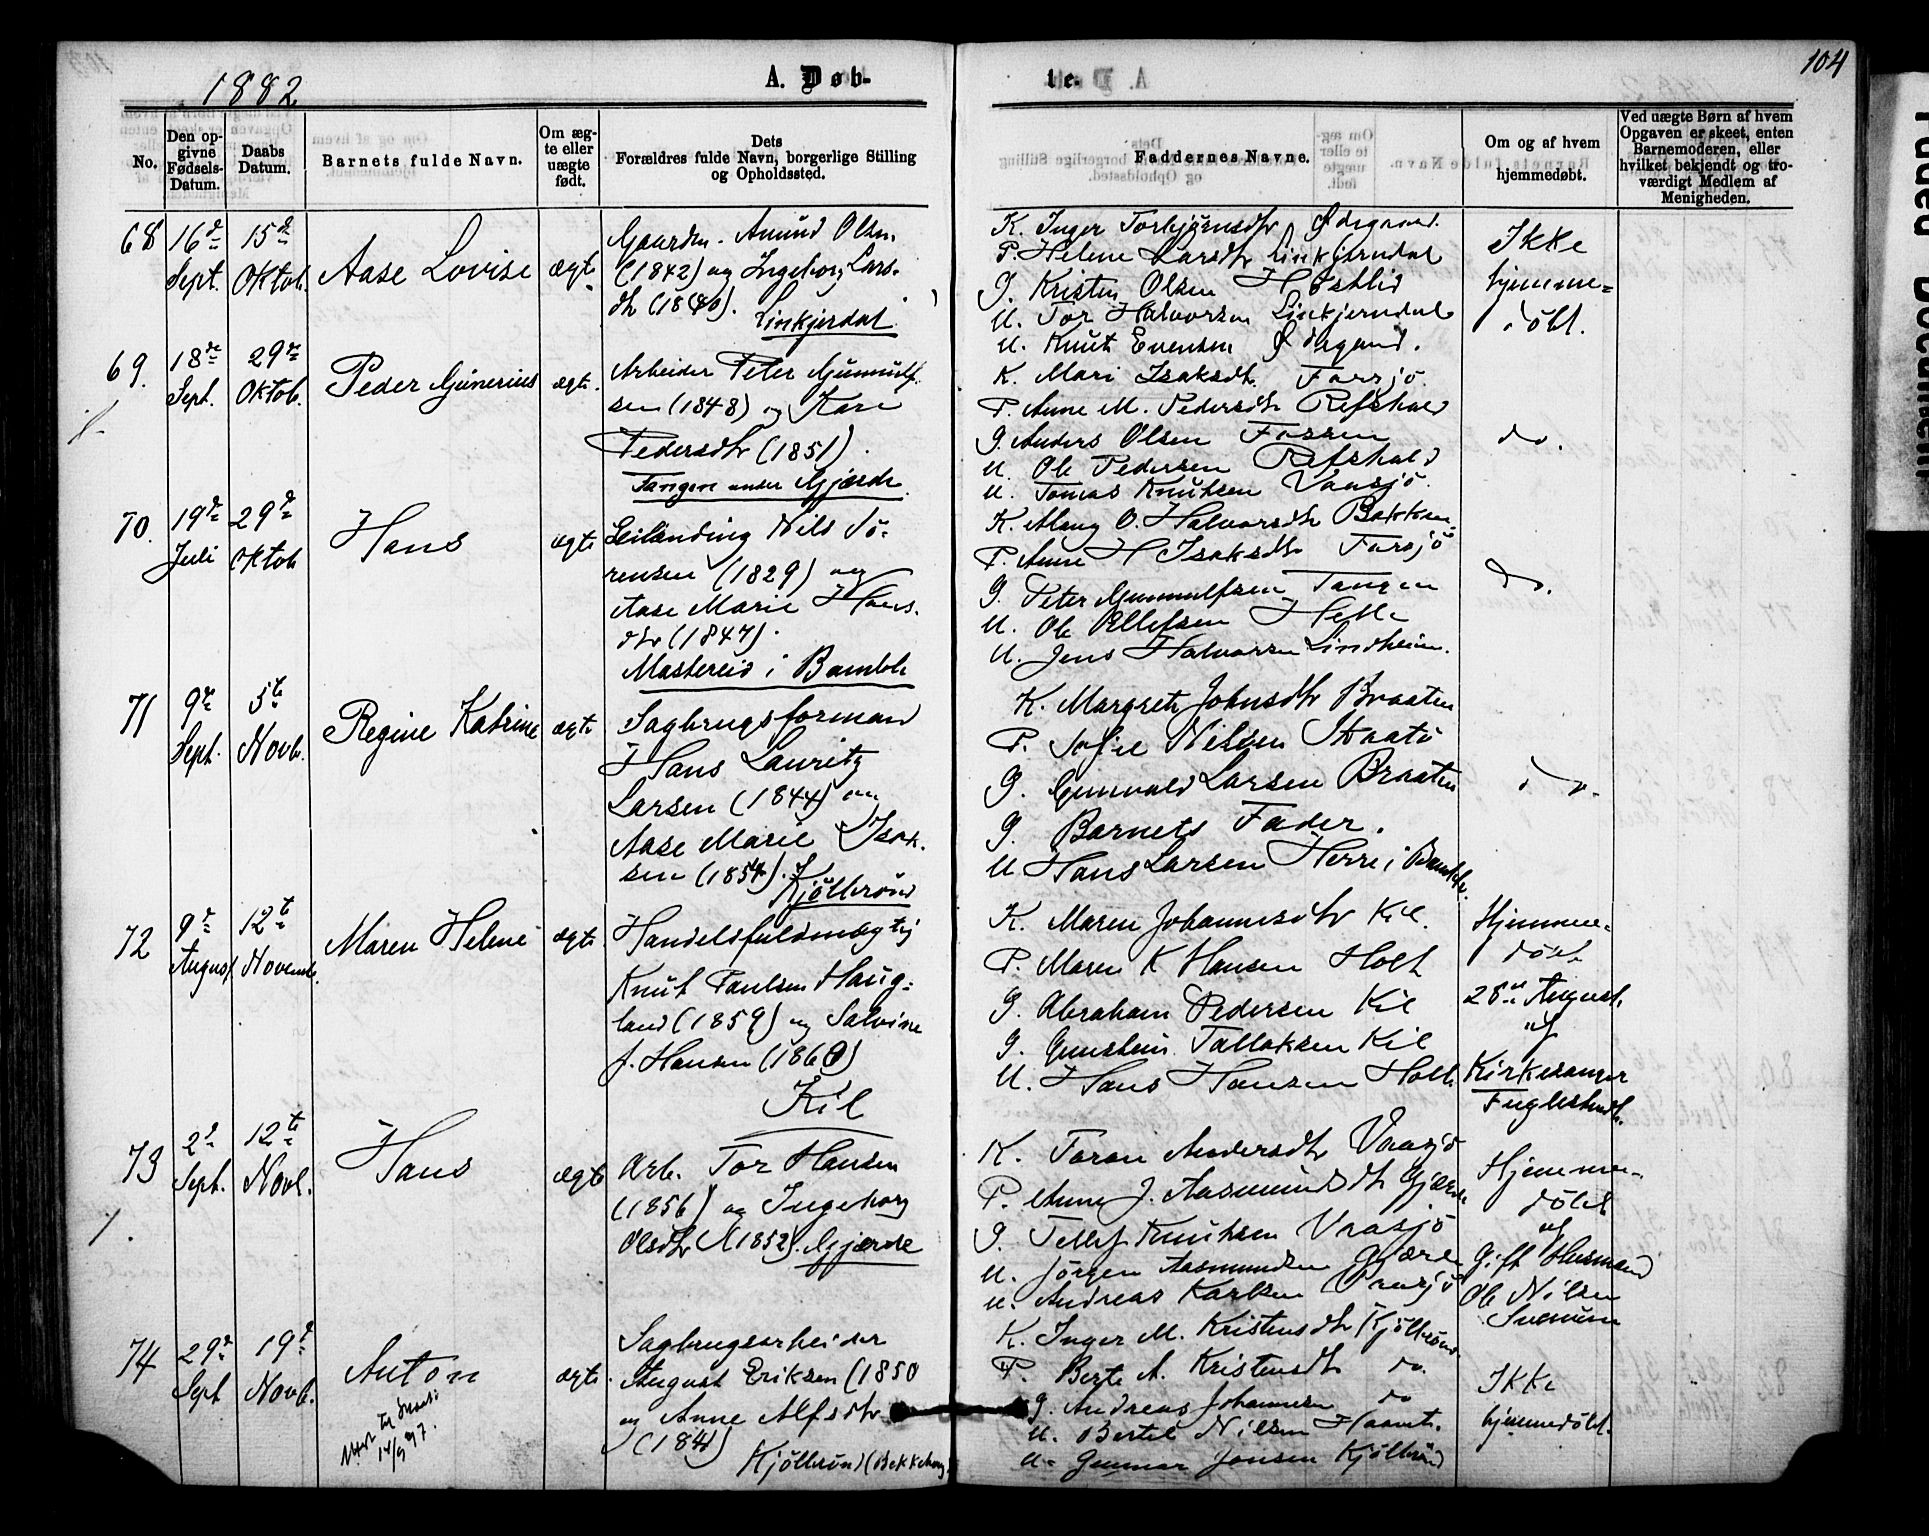 104
1882
A. Døb-
te.
No.
Den op-
givne
Fødsels-
Datum.
Daabs
Datum.
Barnets fulde Navn.
Om æg-
te eller
uægte
født.
Dets
Forældres fulde Navn, borgerlige Stilling
og Opholdssted.
Faddernes Navne.
Om og af hvem
hjemmedøbt.
Ved uægte Børn af hvem
Opgaven er skeet, enten
Barnemoderen, eller
hvilket bekjendt og tro-
værdigt Medlem af
Menigheden.
68
16de
Sept.
15de
Oktob.
Aase Lovise
ægte
Gaardm. Amund Olsen
(1842) og Ingeborg Lars-
dtr (1840).
Linkjerdal
K. Inger Torbjørnsdtr Ødegaard.
P. Helene Larsdtr Linkjerndal
G. Kristen Olsen Høstlid
U. Tor Halvorsen Linkjerndal
U. Knut Evensen Ødegaard.
Ikke
hjemme=
døbt.
69.
18de
Sept.
29de
Oktob.
Peder Gunerius
ægte.
Arbeider Peter Gunnulf-
sen (1848) og Kari
Pedersdtr (1851).
Tangen under Gjærde.
K. Mari Isaksdtr. Farsjø.
P. Anne M. Pedersdtr Refshald
G. Anders Olsen Fossen
U. Ole Pedersen Refshald
U. Tomas Knutsen Vaasjø.
do.
70.
19de
Juli
29de
Oktob
Hans
ægte
Leilænding Nils Sø-
rensen (1829) og
Aase Marie Hans-
dtr (1847).
Mastereid i Bamble
K. Maug O. Halvorsdtr Bakken.
P. Anne H Isaksdtr Farsjø
G. Peter Gunnulfsen Tangen
U. Ole Ellefsen Helle
U. Jens Halvorsen Lindheim.
do.
71
9de
Sept.
5te
Novb.
Regine Katrine
ægte
Sagbrugsformand
Hans Lauritz
Larsen (1844) og
Aase Marie Isak-
sen (1854).
Kjølbrønd
K. Margrete Johnsdtr Braaten
P. Sofie Nilsen Straatø
G. Gunvald Larsen Braaten
G. Barnets Fader.
U Hans Larsen Herre i Bamble.
do.
72
9de
August
12te
Novemb.
Maren Helene
ægte
Handelsfuldmægtig
Knut Paulsen Haug=
land (1859) og Salvine
J. Hansen (1860)
Kil
K. Maren Johannesdtr Kil.
P. Maren K Hansen Holt
G. Abraham Pedersen Kil
G. Gunstein Tallaksen Kil
U. Hans Hansen Holt
Hjemme=
døbt
28de August
af
Kirkesanger
Fuglestvedt.
73
2de
Sept.
12te
Novb.
Hans
ægte
Arb. Tor Hansen
(1856) og Ingeborg
Olsdtr (1852). Gjærde
K. Toran Andersdtr Vaasjø
P. Anne J. Aasmundsdtr Gjærde
G. Tellef Knutsen Vaasjø
U. Jørgen Aasmundsen Gjærde
U. Andreas Karlsen Vaasjø
Hjemme-
døbt
af
Gift Husmand
Ole Nilsen
74
29de
Sept
19de
Novb.
Anton
14/9 97.
ægte.
Sagbrugsarbeider
August Eriksen (1850
og Anne Alfsdtr
Kjølbrønd (Bekkehaug)
K. Inger M. Kristensdtr Kjølbrønd
P. Berte A. Kristensdtr do.
G. Andreas Johannesen do
U. Bertel Nilsen
U. Gunnar Jensen Kjølbrønd
Ikke
hjemmedøbt.